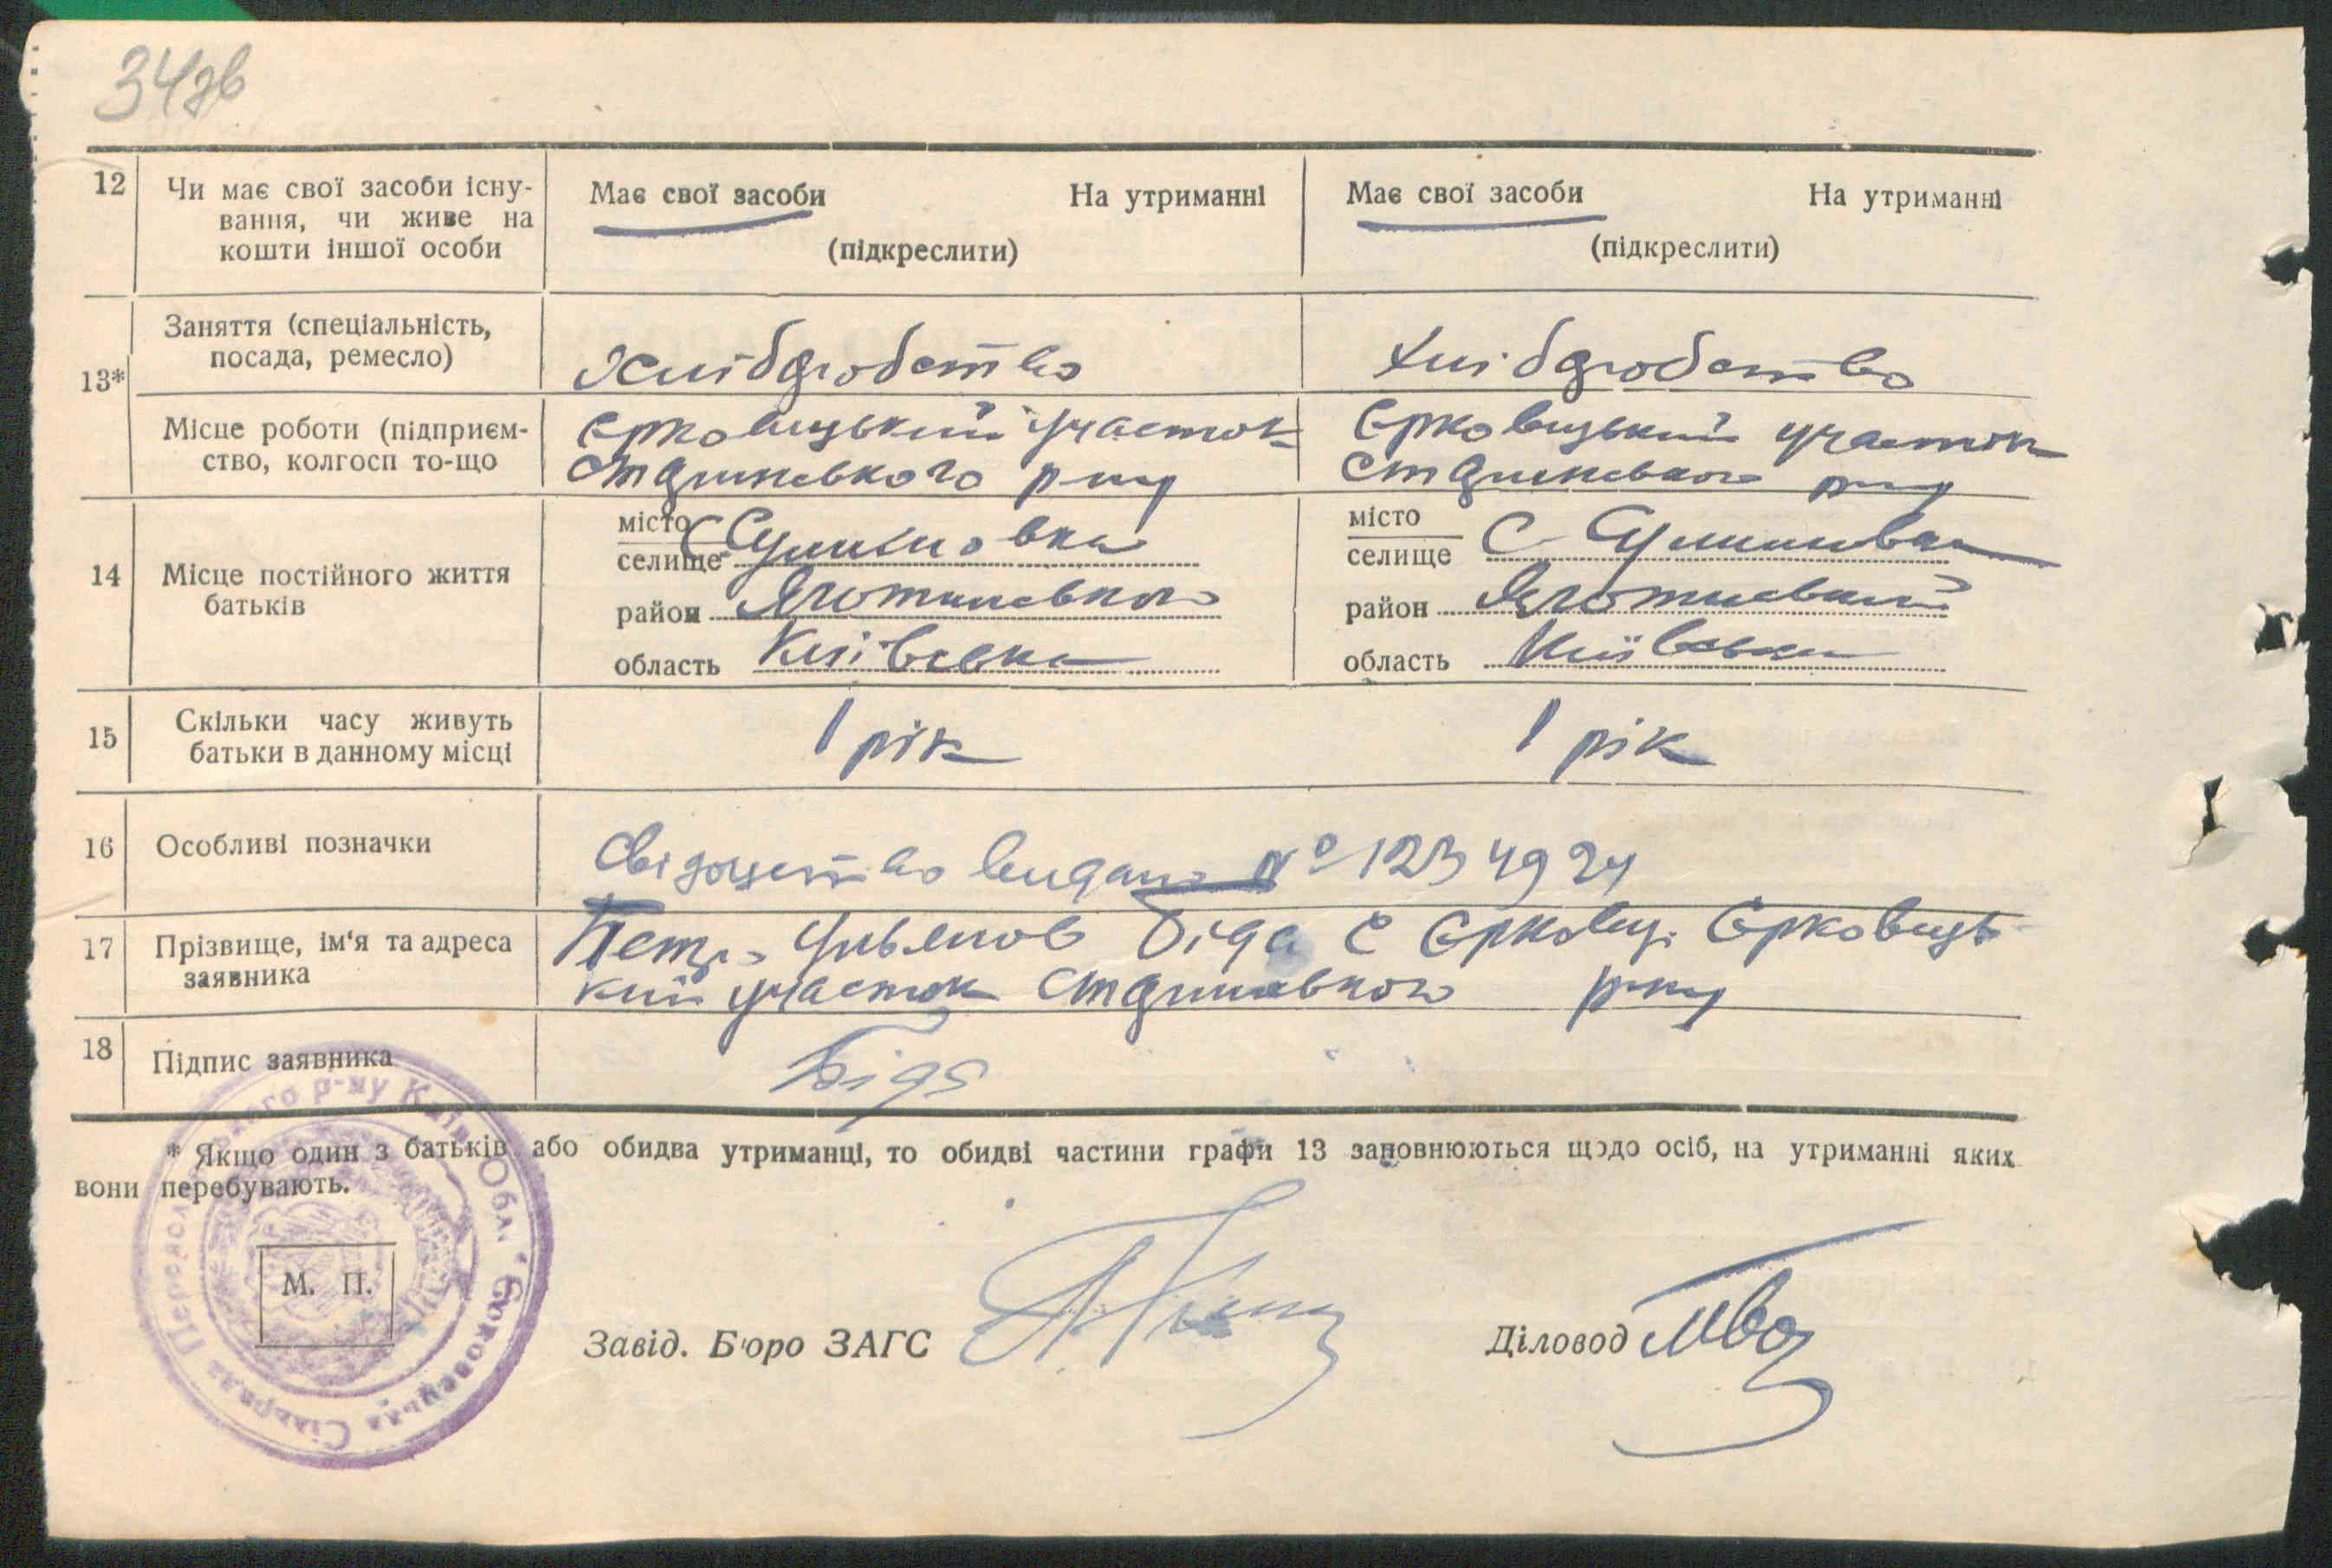 34зв
12 Чи має свої засоби існу-
вання, чи живе на
кошти іншої особи
Має свої засоби На утриманні
(підкреслити)
Має свої засоби На утриманні
(підкреслити)
13*
Заняття (спеціальність,
посада, ремесло)
Хліборобство
Хліборобство
Місце роботи (підприєм-
ство, колгосп то-що
Єрковецький участок
р-ну
Єрковецький участок
р-ну
14 Місце постійного життя
батьків
місто
селище С
район Яготинського
область Київська
місто
селище С
район Яготинський
область Київська
15 Скільки часу живуть
батьки в данному місці
1 рік
1 рік
16 Особливі позначки
Свідоцтво видано №
17 Прізвище, ім'я та адреса
заявника
Біда с Єрковці Єрковець
кий участок р-ну
18 Підпис заявника
Біда
* Якщо один з батьків або обидва утриманці, то обидві частини графи 13 заповнюються щодо осіб, на утриманні яких
вони перебувають.
М. П.
Завід. Бюро ЗАГС
Діловод
р-ну Київ. Обл. Єрковецька Сільрада